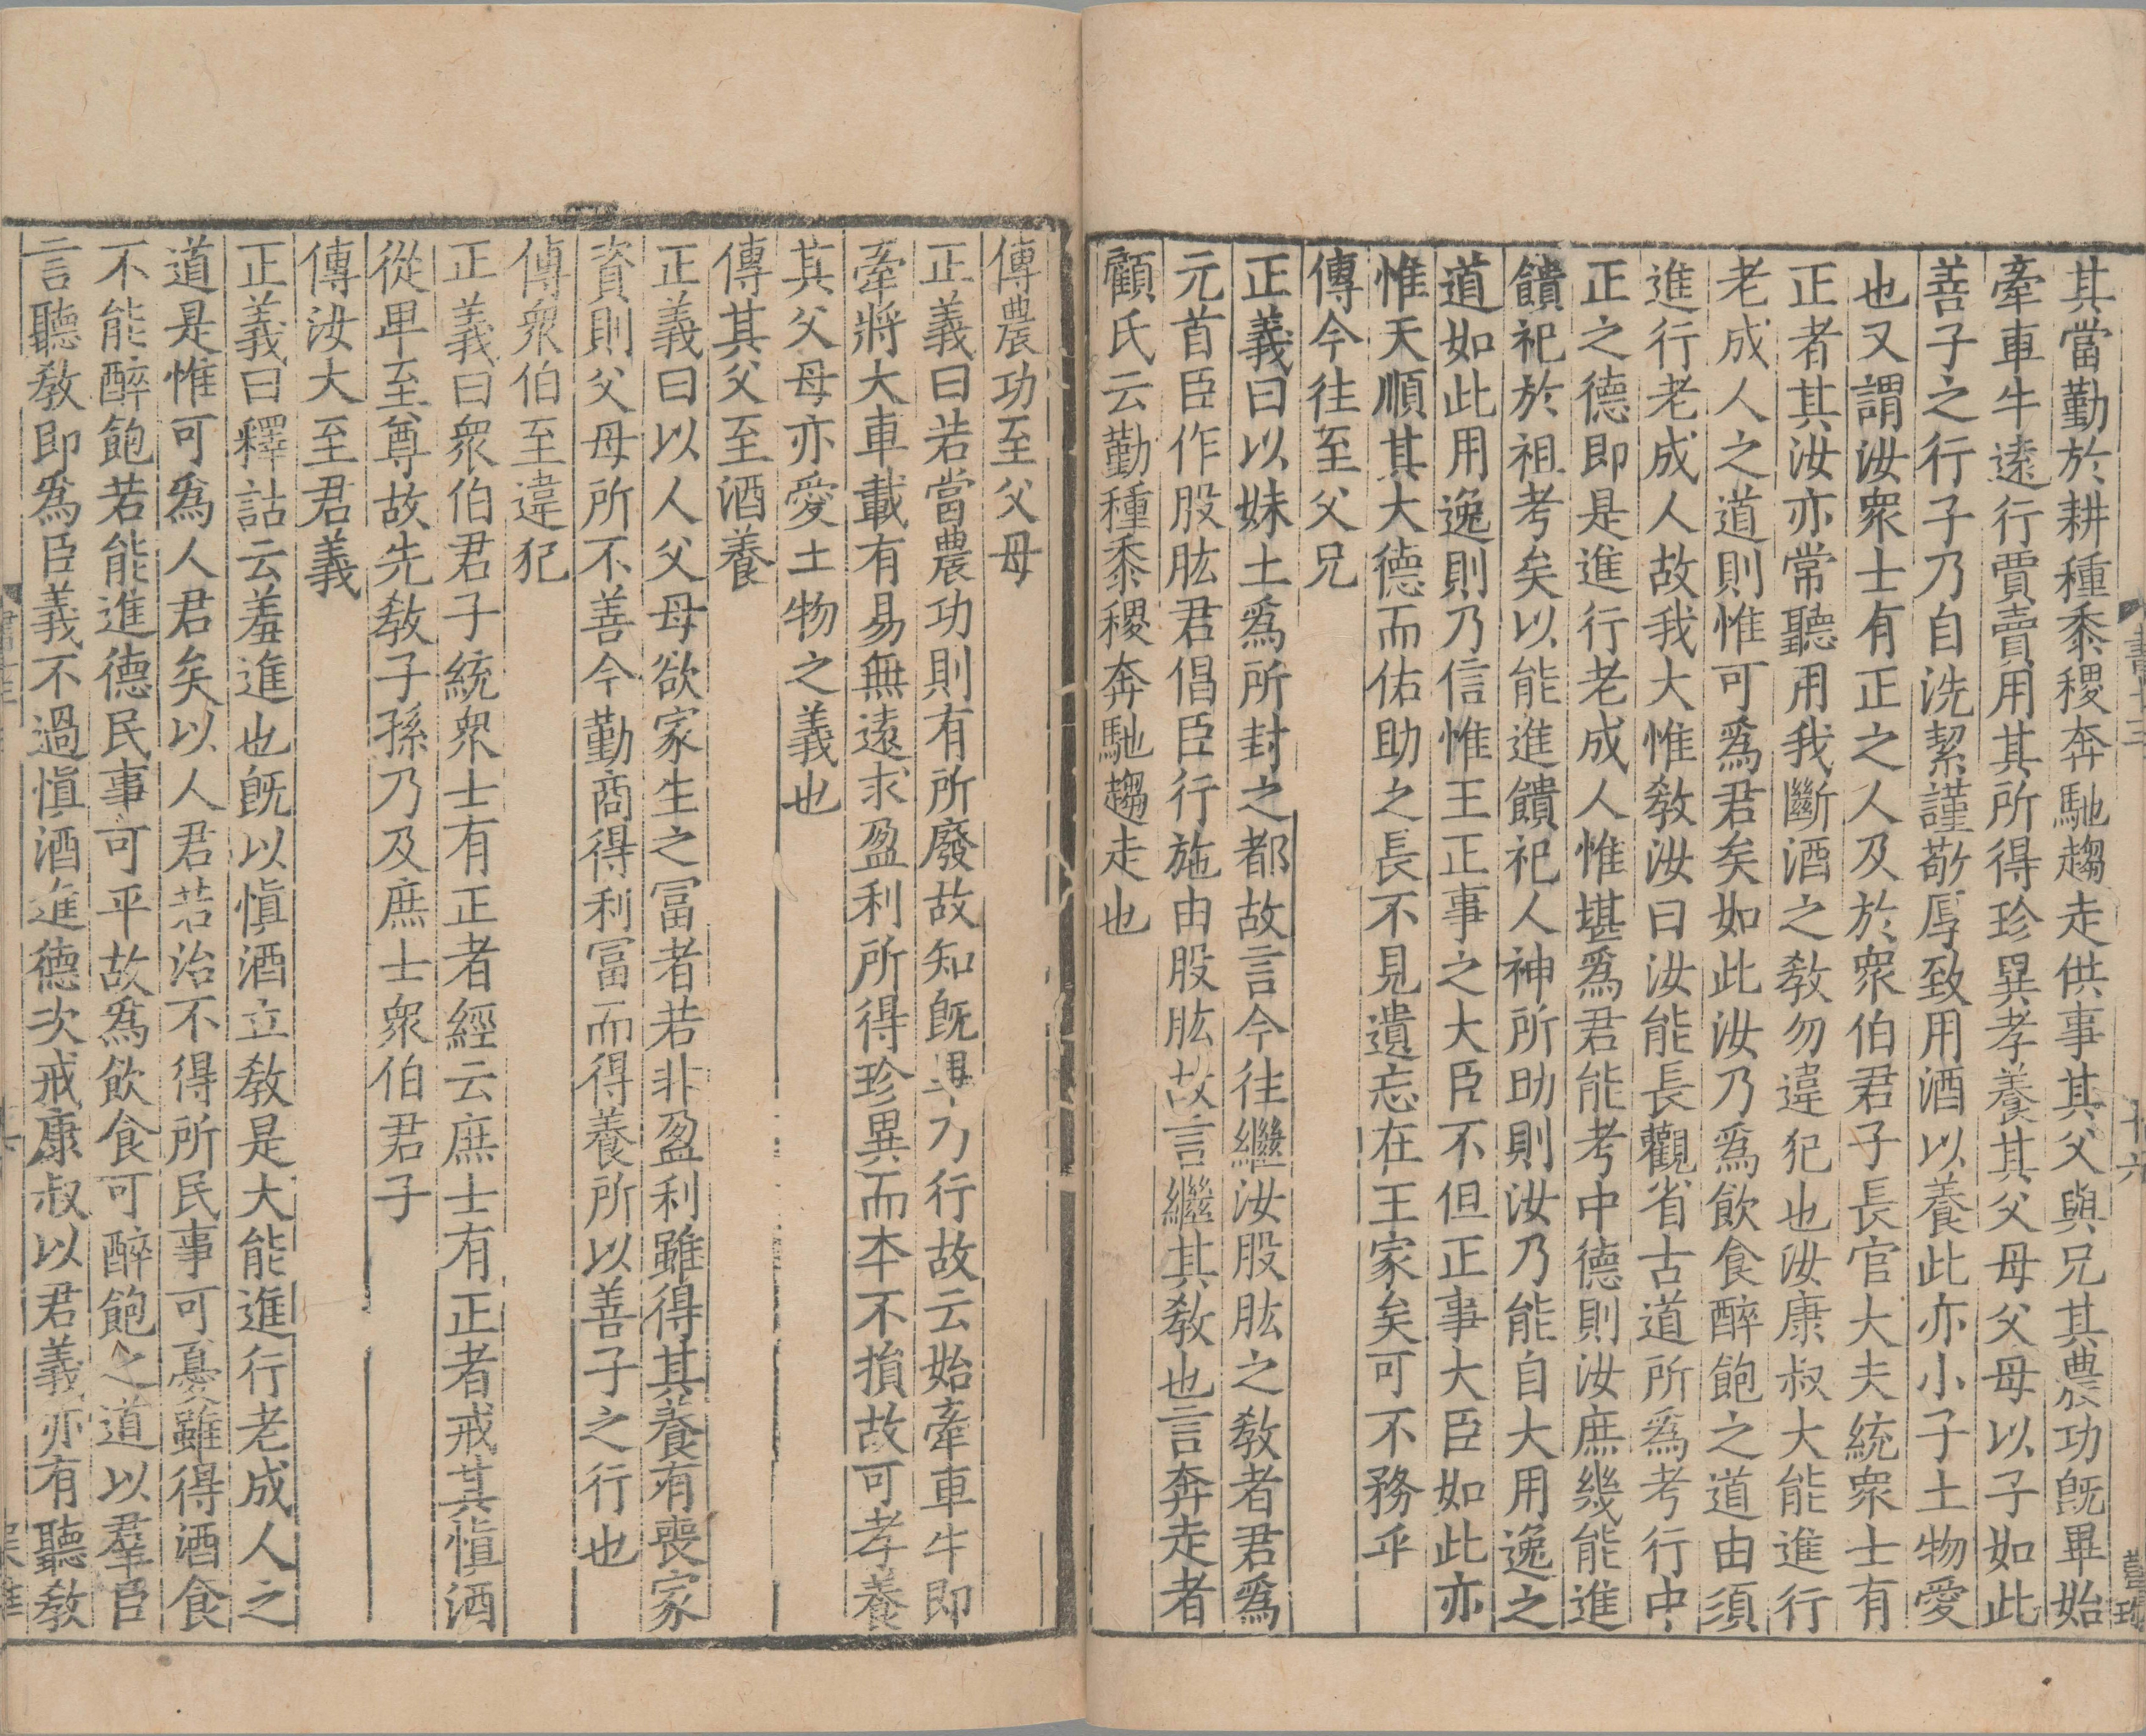 其當勤於耕種黍稷奔馳趨走供事其父與兄其農功旣畢始
牽車牛遠行賈賣用其所得珍異孝養其父母父母以子如此
善子之行子乃自洗絜謹敬厚致用酒以養此亦小子土物愛
也又謂汝衆士有正之人及於衆伯君子長官大夫統衆士有
正者其汝亦常聽用我斷酒之敎勿違犯也汝康叔大能進行
老成人之道則惟可爲君矣如此汝乃爲飮食醉飽之道由須
進行老成人故我大惟敎汝曰汝能長觀省古道所爲考行中
正之德即是進行老成人惟堪爲君能考中德則汝庶幾能進
饋祀於祖考矣以能進饋祀人神所助則汝乃能自大用逸之
道如此用逸則乃信惟王正事之大臣不但正事大臣如此亦
惟天順其大德而佑助之長不見遺忘在王家矣可不務乎
傳今往至父兄
正義曰以妹土爲所封之都故言今往繼汝股肱之敎者君爲
元首臣作股肱君倡臣行施由股肱故言繼其敎也言奔走者
顧氏云勤種黍稷奔馳趨走也
書十三
十六
傳農功至父母
正義曰若當農功則有所廢故知旣畢乃行故云始牽車牛即
牽將大車載有易無遠求盈利所得珍異而本不損故可孝養
其父母亦愛土物之義也
傳其父至酒養
正義曰以人父母欲家生之冨者若非盈利雖得其養有喪家
資則父母所不善今勤商得利冨而得養所以善子之行也
傳衆伯至違犯
正義曰衆伯君子統衆士有正者經云庶士有正者戒其愼酒
從卑至尊故先敎子孫乃及庶士衆伯君子
傳汝大至君義
正義曰釋詁云羞進也旣以愼酒立敎是大能進行老成人之
道是惟可爲人君矣以人君若治不得所民事可憂雖得酒食
不能醉飽若能進德民事可平故爲飮食可醉飽之道以羣臣
言聽敎即爲臣義不過愼酒進德次戒康叔以君義亦有聽敎